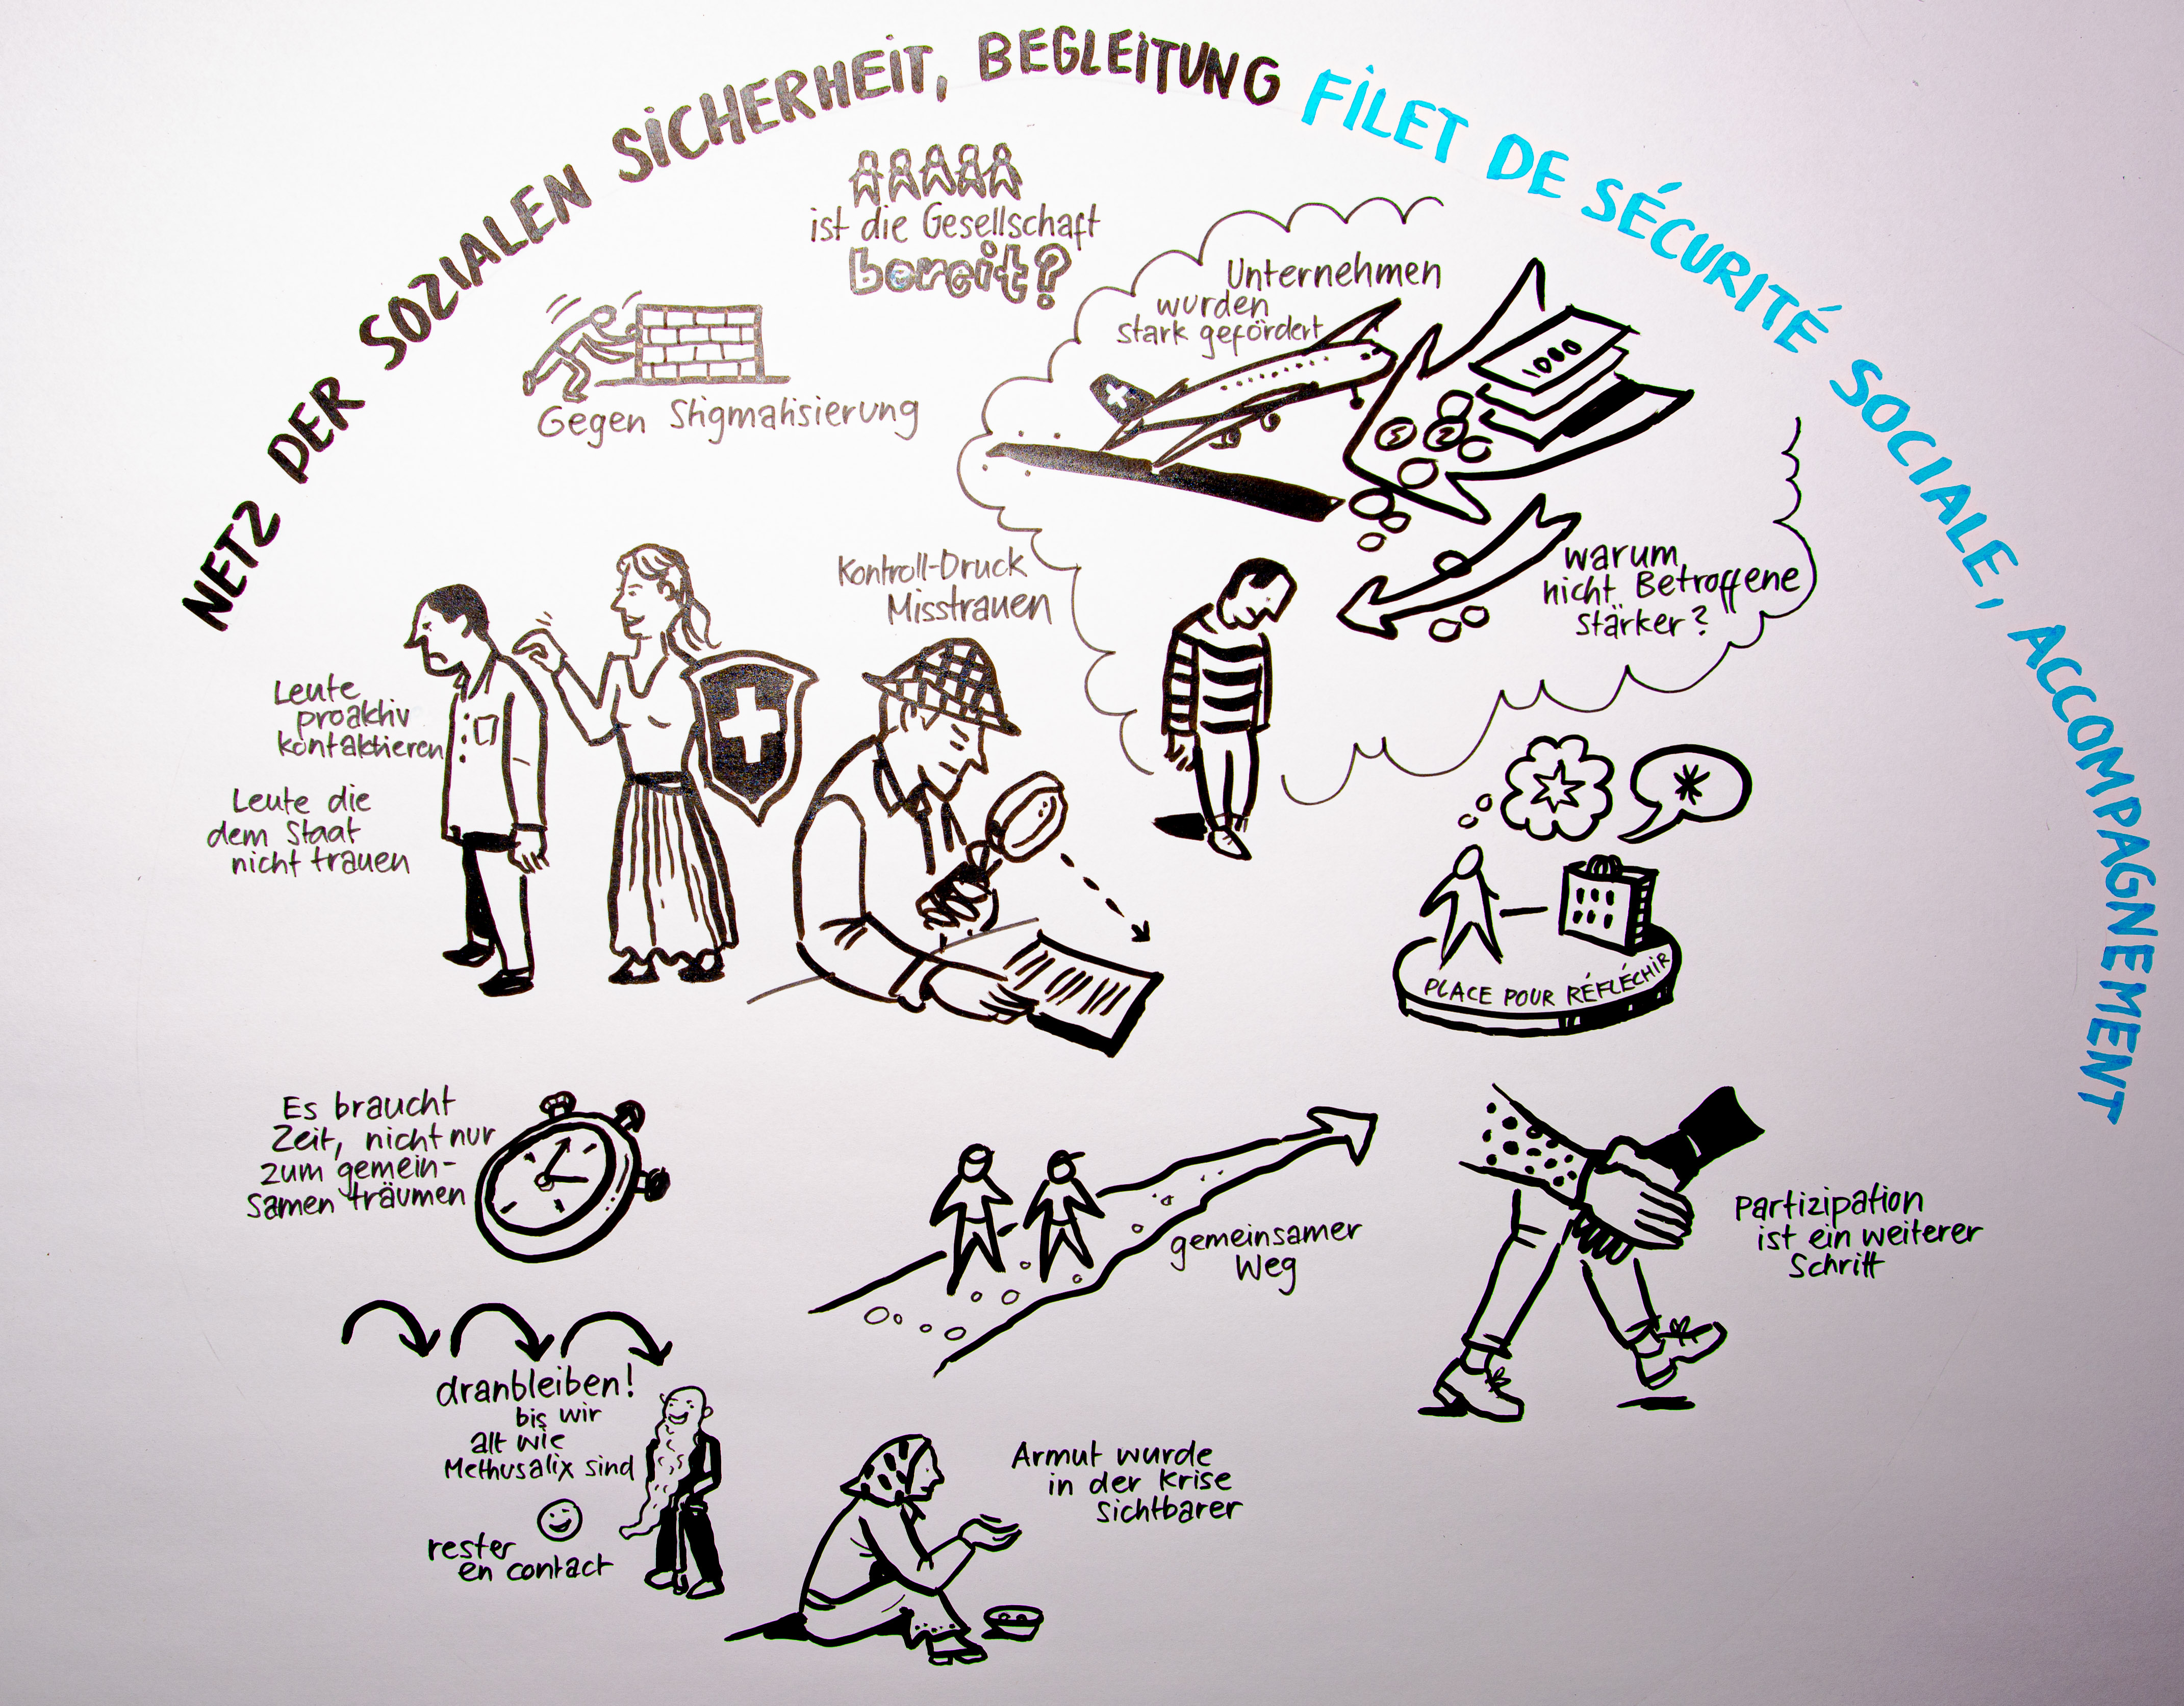 NETZ DER SOZIALEN SICHERHEIT, BEGLEITUNG FILET DE SÉCURITÉ SOCIALE, ACCOMPAGNEMENT
ist die Gesellschaft
bereit?
Gegen Stigmatisierung
Unternehmen
wurden
stark gefördert
1000
5 2
warum
nicht Betroffene
stärker?
Kontroll-Druck
Misstrauen
Leute
proaktiv
kontaktieren
Leute die
dem Staat
nicht trauen
PLACE POUR RÉFLÉCHIR
Es braucht
Zeit, nicht nur
zum gemein-
samen träumen
gemeinsamer
Weg
Partizipation
ist ein weiterer
Schritt
dranbleiben!
bis wir
alt wie
Methusalix sind
rester
en contact
Armut wurde
in der Krise
sichtbarer